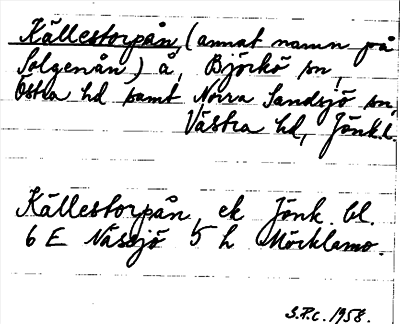 Källestorpån (annat namn på
Solgenån) å, Björkö sn,
Östra hd samt Norra Sandsjö sn,
Västra hd, Jönk.l.
Källestorpån, ek Jönk. bl.
6 E Nässjö 5 h Möcklamo.
S.P.C. 1958.